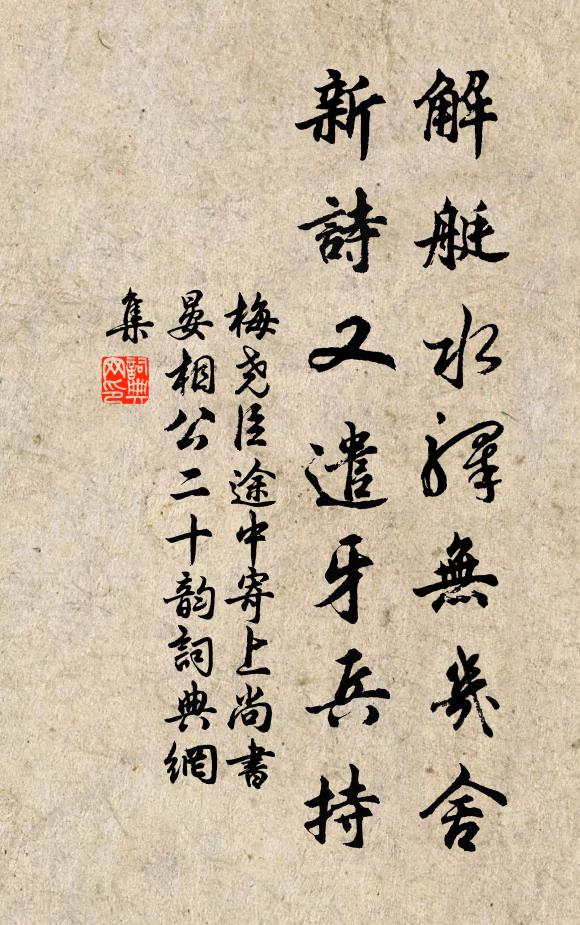 解艇水驛無幾舍
新詩又遣牙兵持
梅堯臣途中寄上尚書
晏相公二十韵詞典網
集
詞典网印